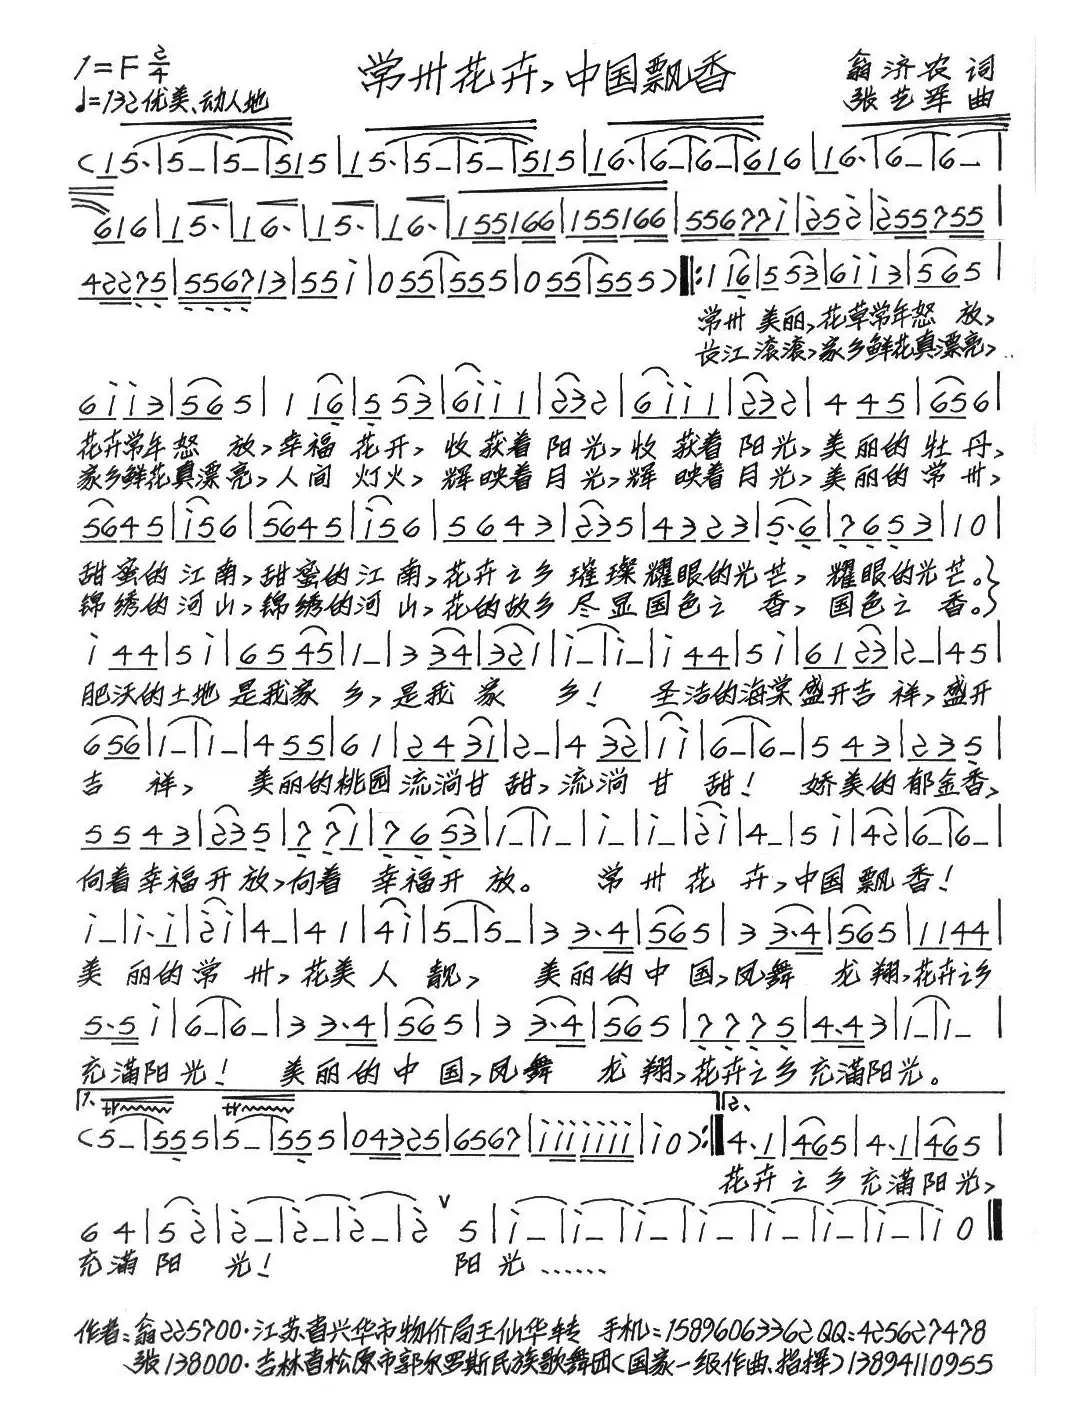 1=F 2/4
常州花卉,中国飘香
翁济农 词
♩=132 优美、动人地
张艺军 曲
(1 5· | 5 - | 5 - | 5 1 5 | 1 5· | 5 - | 5 - | 5 1 5 | 1 6· | 6 - | 6 - | 6 1 6 | 1 6· | 6 - | 6 - |
6 1 6 | 1 5· | 1 6· | 1 5· | 1 6· | 1 5 5 1 6 6 | 1 5 5 1 6 6 | 5 5 6 7 7 i | 2̇ 5 2̇ | 2̇ 5 5 7 5 5 |
4 2 2 7 5 | 5 5 6 7 1 3 | 5 5 i | 0 5 5 | 5 5 5 | 0 5 5 | 5 5 5) ‖: 1 1 6 | 5 5 3 | 6 i i 3 | 5 6 5 |
常州 美丽,花草常年怒 放,
长江 滚滚,家乡鲜花真漂亮,
6 i i 3 | 5 6 5 | 1 1 6 | 5 5 3 | 6 i i 1 | 2̇ 3 2 | 6 i i 1 | 2̇ 3 2 | 4 4 5 | 6 5 6 |
花卉常年 怒 放,幸福 花开, 收 获着 阳光,收 获着 阳光,美丽的 牡 丹,
家乡鲜花真漂亮,人间 灯火, 辉映着月光,辉 映着月光,美丽的 常 州,
5 6 4 5 | i 5 6 | 5 6 4 5 | i 5 6 | 5 6 4 3 | 2 3 5 | 4 3 2 3 | 5·6 | 7 6 5 3 | 1 0 |
甜蜜的江南,甜蜜的江 南,花卉之乡 璀璨 耀眼的光芒, 耀眼的光芒。
锦绣的河山,锦绣的河 山,花的故乡 尽显国色之 香, 国色之 香。
i 4 4 | 5 i | 6 5 4 5 | 1 - | 3 3 4 | 3 2 1 | i - | i - | i 4 4 | 5 i | 6 1 2 3 | 2 - | 4 5 |
肥沃的土地 是我家 乡,是我 家 乡! 圣洁的海棠盛开吉 祥,盛开
6 5 6 | i - | i - | 4 5 5 | 6 1 | 2 4 3 1 | 2 - | 4 3 2 | 1 i | 6 - | 6 - | 5 4 3 | 2 3 5 |
吉 祥, 美丽的桃园流淌甘 甜,流淌 甘 甜! 娇美的郁金香,
5 5 4 3 | 2 3 5 | 7 7 1 | 7 6 5 3 | 1 - | 1 - | i - | i - | 2̇ i | 4 - | 5 i | 4 2 | 6 - | 6 - |
向着幸福开 放,向着 幸福开 放。 常 州 花 卉,中国飘香!
i - | i· i | 2̇ i | 4 - | 4 1 | 4 i | 5 - | 5 - | 3 3·4 | 5 6 5 | 3 3·4 | 5 6 5 | 1 1 4 4 |
美 丽的常 州,花美人 靓, 美丽的中 国,凤舞 龙翔,花卉之乡
5·5 i | 6 - | 6 - | 3 3·4 | 5 6 5 | 3 3·4 | 5 6 5 | 7 7 7 5 | 4·4 3 | 1 - | 1 - |
充满阳光! 美丽的中 国,凤舞 龙 翔,花卉之乡 充满阳光。
1、 tr tr 2、
(5 - | 5 5 5 | 5 - | 5 5 5 | 0 4 3 2 5 | 6 5 6 7 | i i i i i i i | i 0) :‖ 4·1 | 4 6 5 | 4·1 | 4 6 5 |
花卉 之 乡 充满阳光,
6 4 | 5 2̇ | 2̇ - | 2̇ - | 2̇ - | 2̇ ∨ 5 | i - | i - | i - | i - | i - | i - | i 0 ‖
充满 阳 光! 阳 光……
作者:翁225700·江苏省兴华市物价局王仙华转 手机:15896063362 QQ:425627478
张138000·吉林省松原市郭尔罗斯民族歌舞团(国家一级作曲、指挥)13894110955